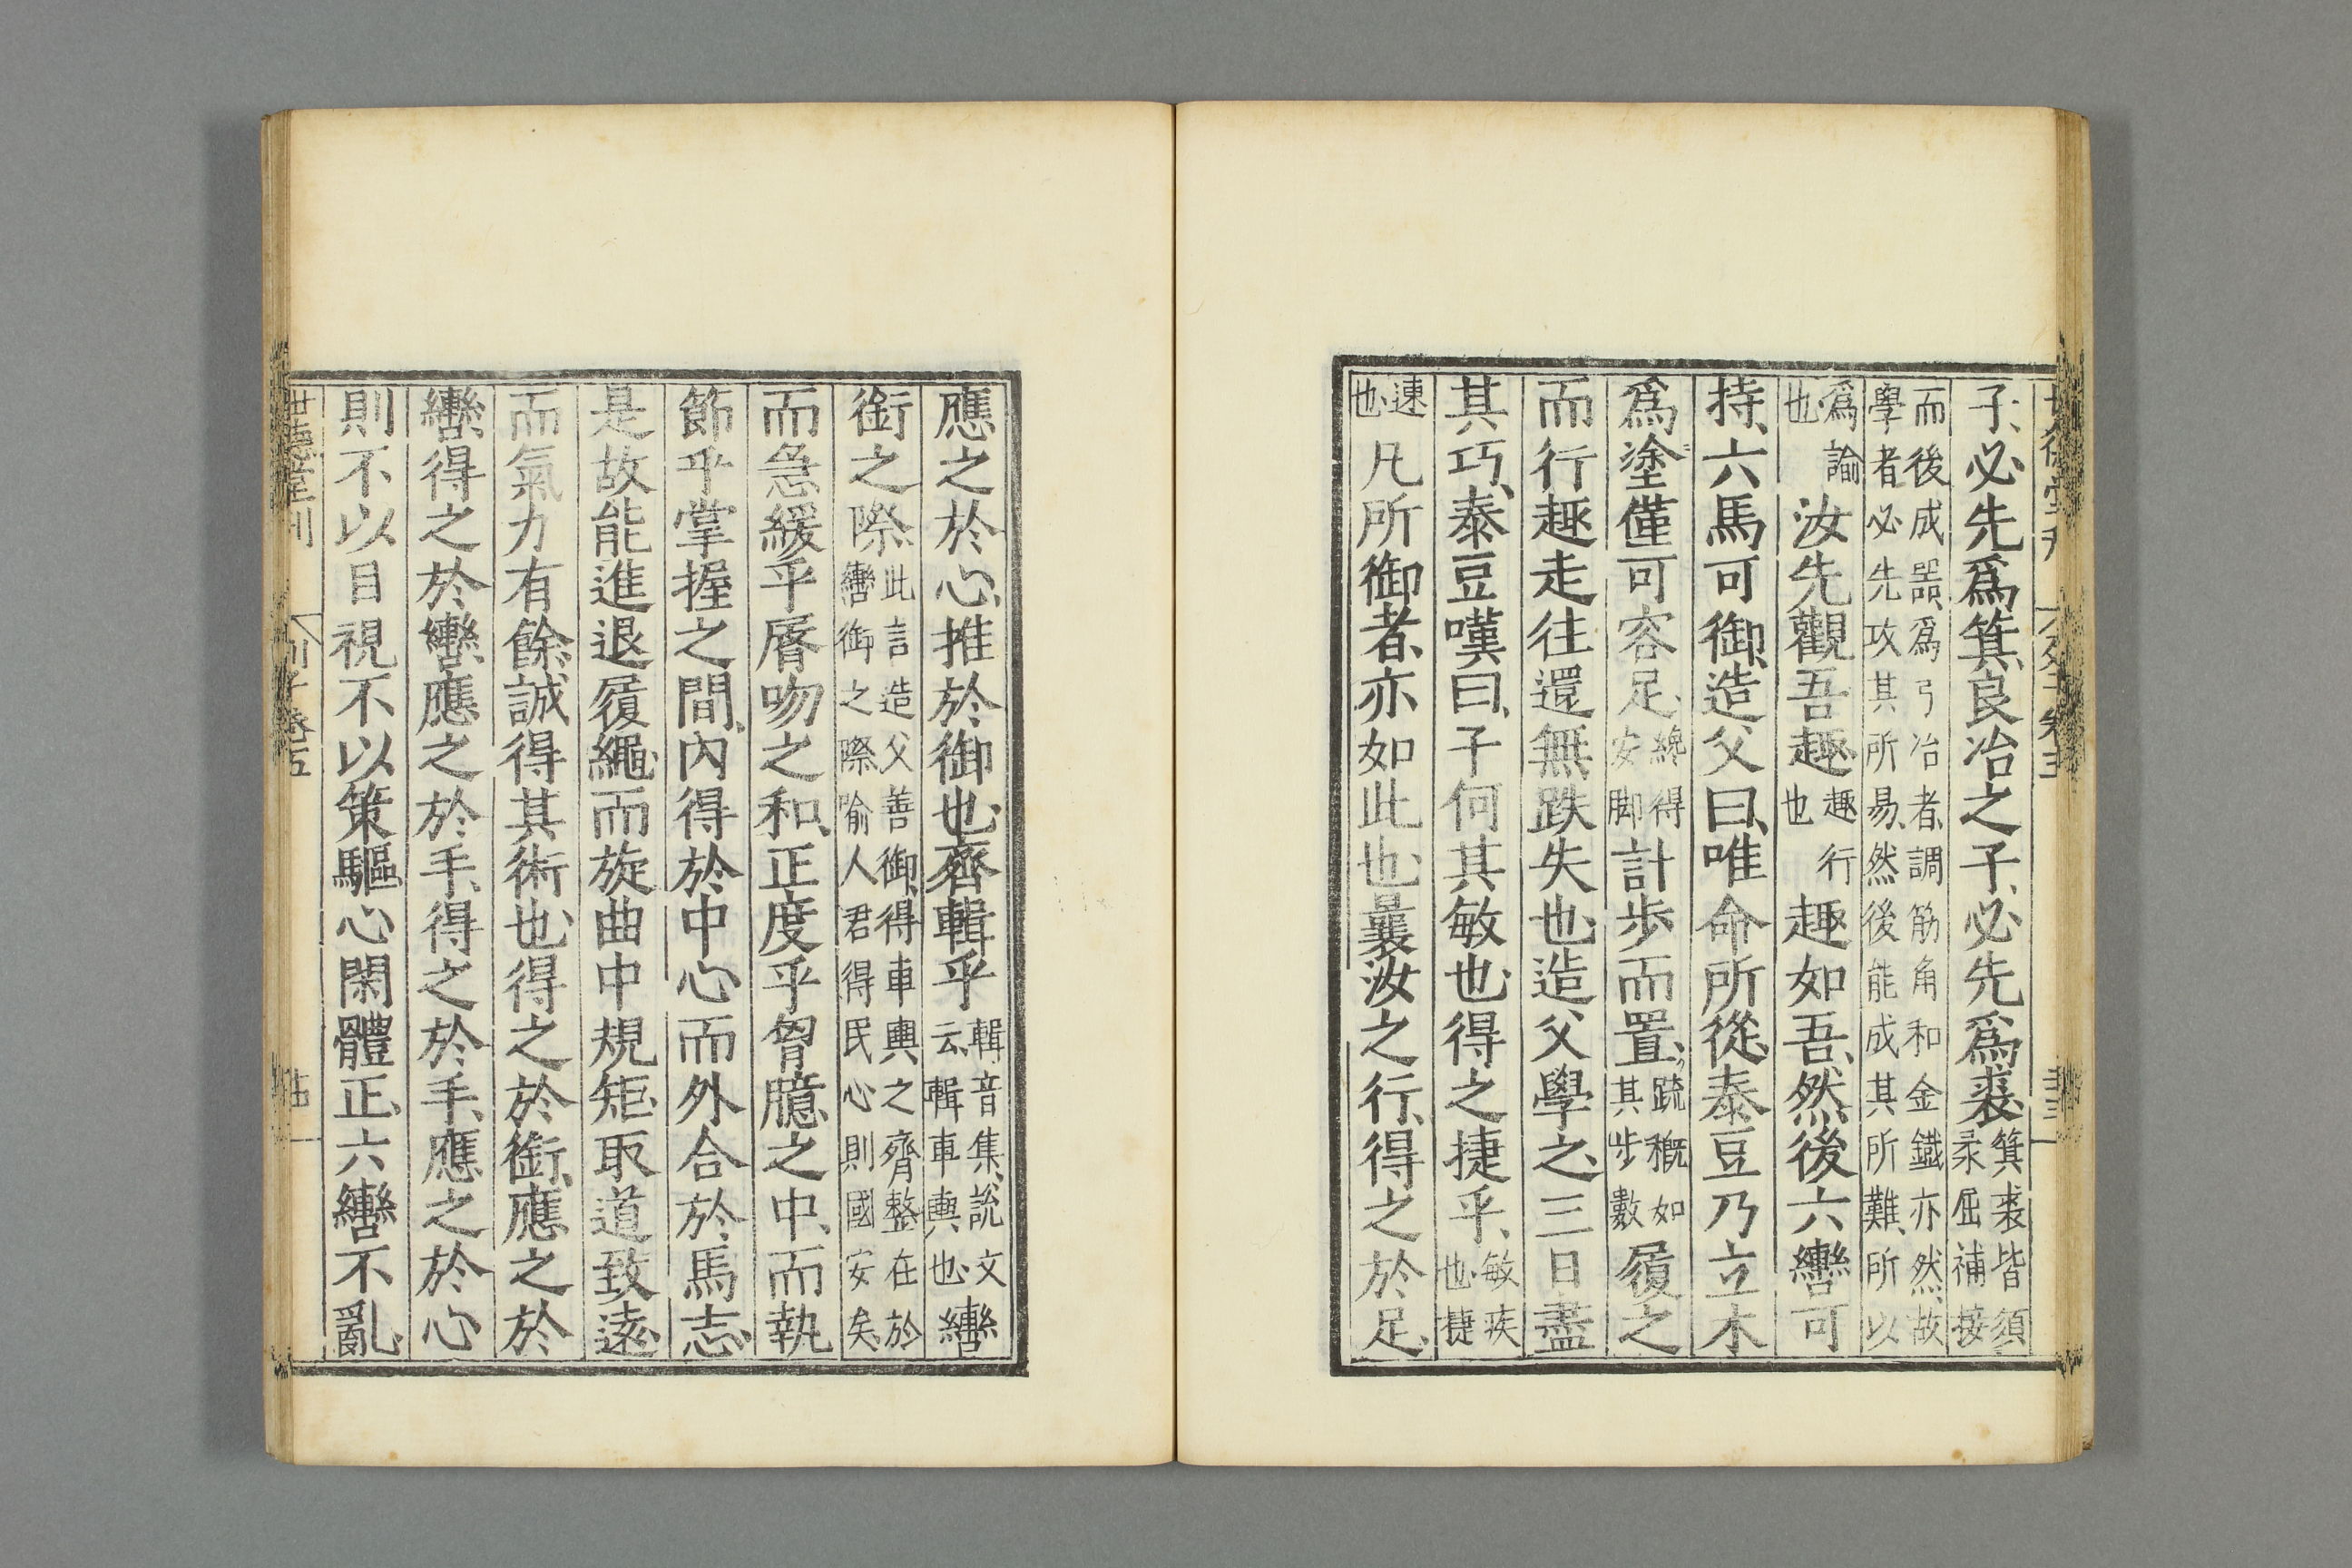 子必先爲箕良冶之子必先爲裘箕裘皆須柔屈補接
而後成器爲弓冶者調筋角和金鐵亦然故學者必先攻其所易然後能成其所難所以
爲諭也汝先觀吾趣趣行也趣如吾然後六轡可
持六馬可御造父曰唯命所從泰豆乃立木
爲塗僅可容足纔得安脚計步而置疏概如其步數履之
而行趣走往還無跌失也造父學之三日盡
其巧泰豆嘆曰子何其敏也得之捷乎敏疾也捷
速也凡所御者亦如此也曩汝之行得之於足
應之於心推於御也齊輯乎輯音集說文云輯車輿也轡
銜之際此言造父善御得車輿之齊整在於轡御之際喻人君得民心則國安矣
而急緩乎脣吻之和正度乎胷臆之中而執
節乎掌握之間內得於中心而外合於馬志
是故能進退履繩而旋曲中規矩取道致遠
而氣力有餘誠得其術也得之於銜應之於
轡得之於轡應之於手得之於手應之於心
則不以目視不以策驅心閑體正六轡不亂
世德堂刊 列子卷五